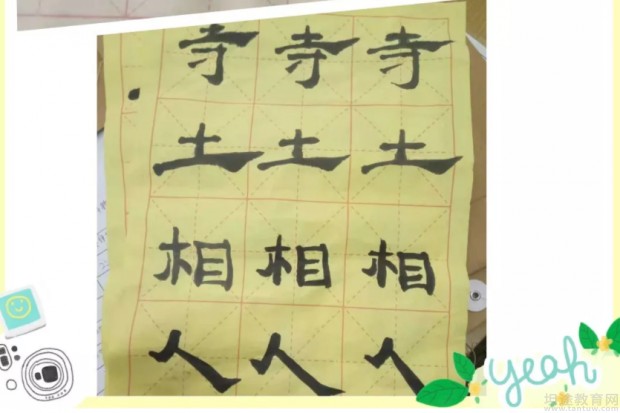 寺 寺 寺
土 土 土
相 相 相
人 人 人
yeah
坦途教育网
www.tantuw.com